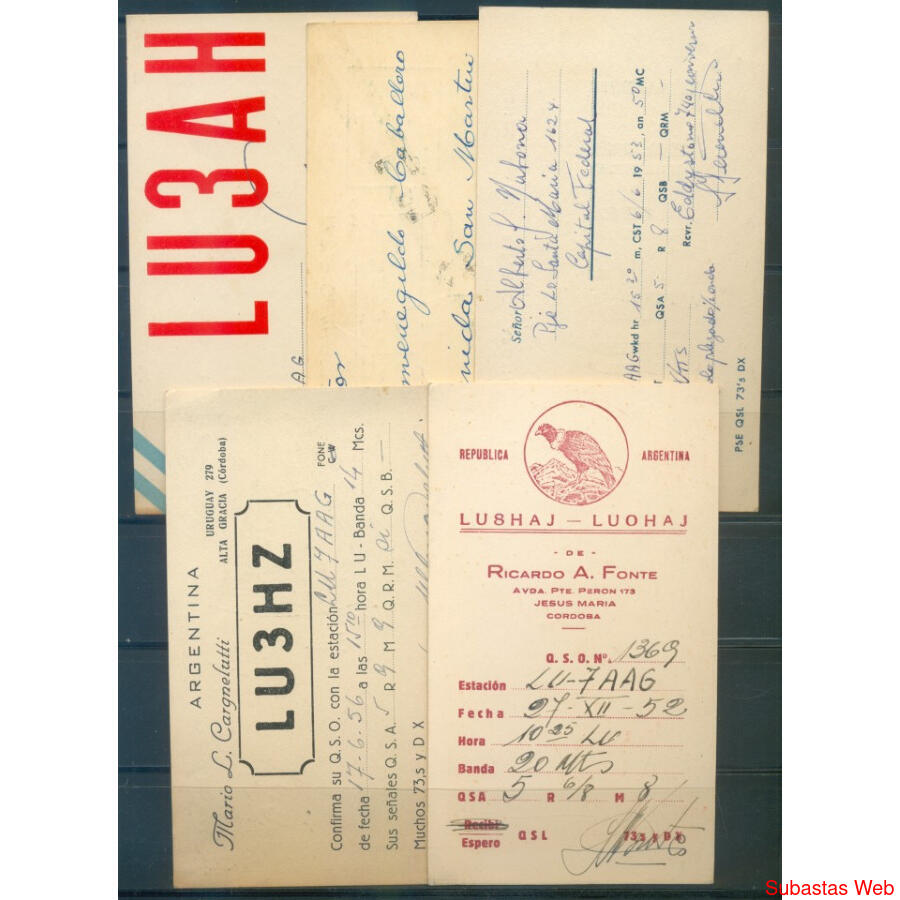 LU3AH
AAG
Hermenegildo Caballero
Avenida San Martin
SEÑOR Alberto
Pje La Santa Maria 1624
Capital Federal
AAG wkd hr 15 20 m, CST 6/6 1953, an 50 MC
QSA 5 - R 8 QSB - QRM -
Rcvr. Eddystone 740, conversor
PSE QSL 73's DX
ARGENTINA
URUGUAY 279
Mario L. Cargnelutti ALTA GRACIA (Córdoba)
LU3HZ
FONE
C W
Confirma su Q.S.O. con la estación LU7AAG
de fecha 17-6-56 a las 15 10 hora LU - Banda 14 Mcs.
Sus señales Q.S.A. 5 R 9 M 9 Q.R.M. si Q.S.B. -
Muchos 73,s y D X
REPUBLICA ARGENTINA
LU8HAJ - LUOHAJ
- DE -
RICARDO A. FONTE
AVDA. PTE. PERON 173
JESUS MARIA
CORDOBA
Q. S. O. Nº. 1369
Estación LU-7AAG
Fecha 27-XII-52
Hora 10 25 LU
Banda 20 Mts
QSA 5 R 6/8 M 8
Recibí
Espero QSL 73,s y DX
Subastas Web